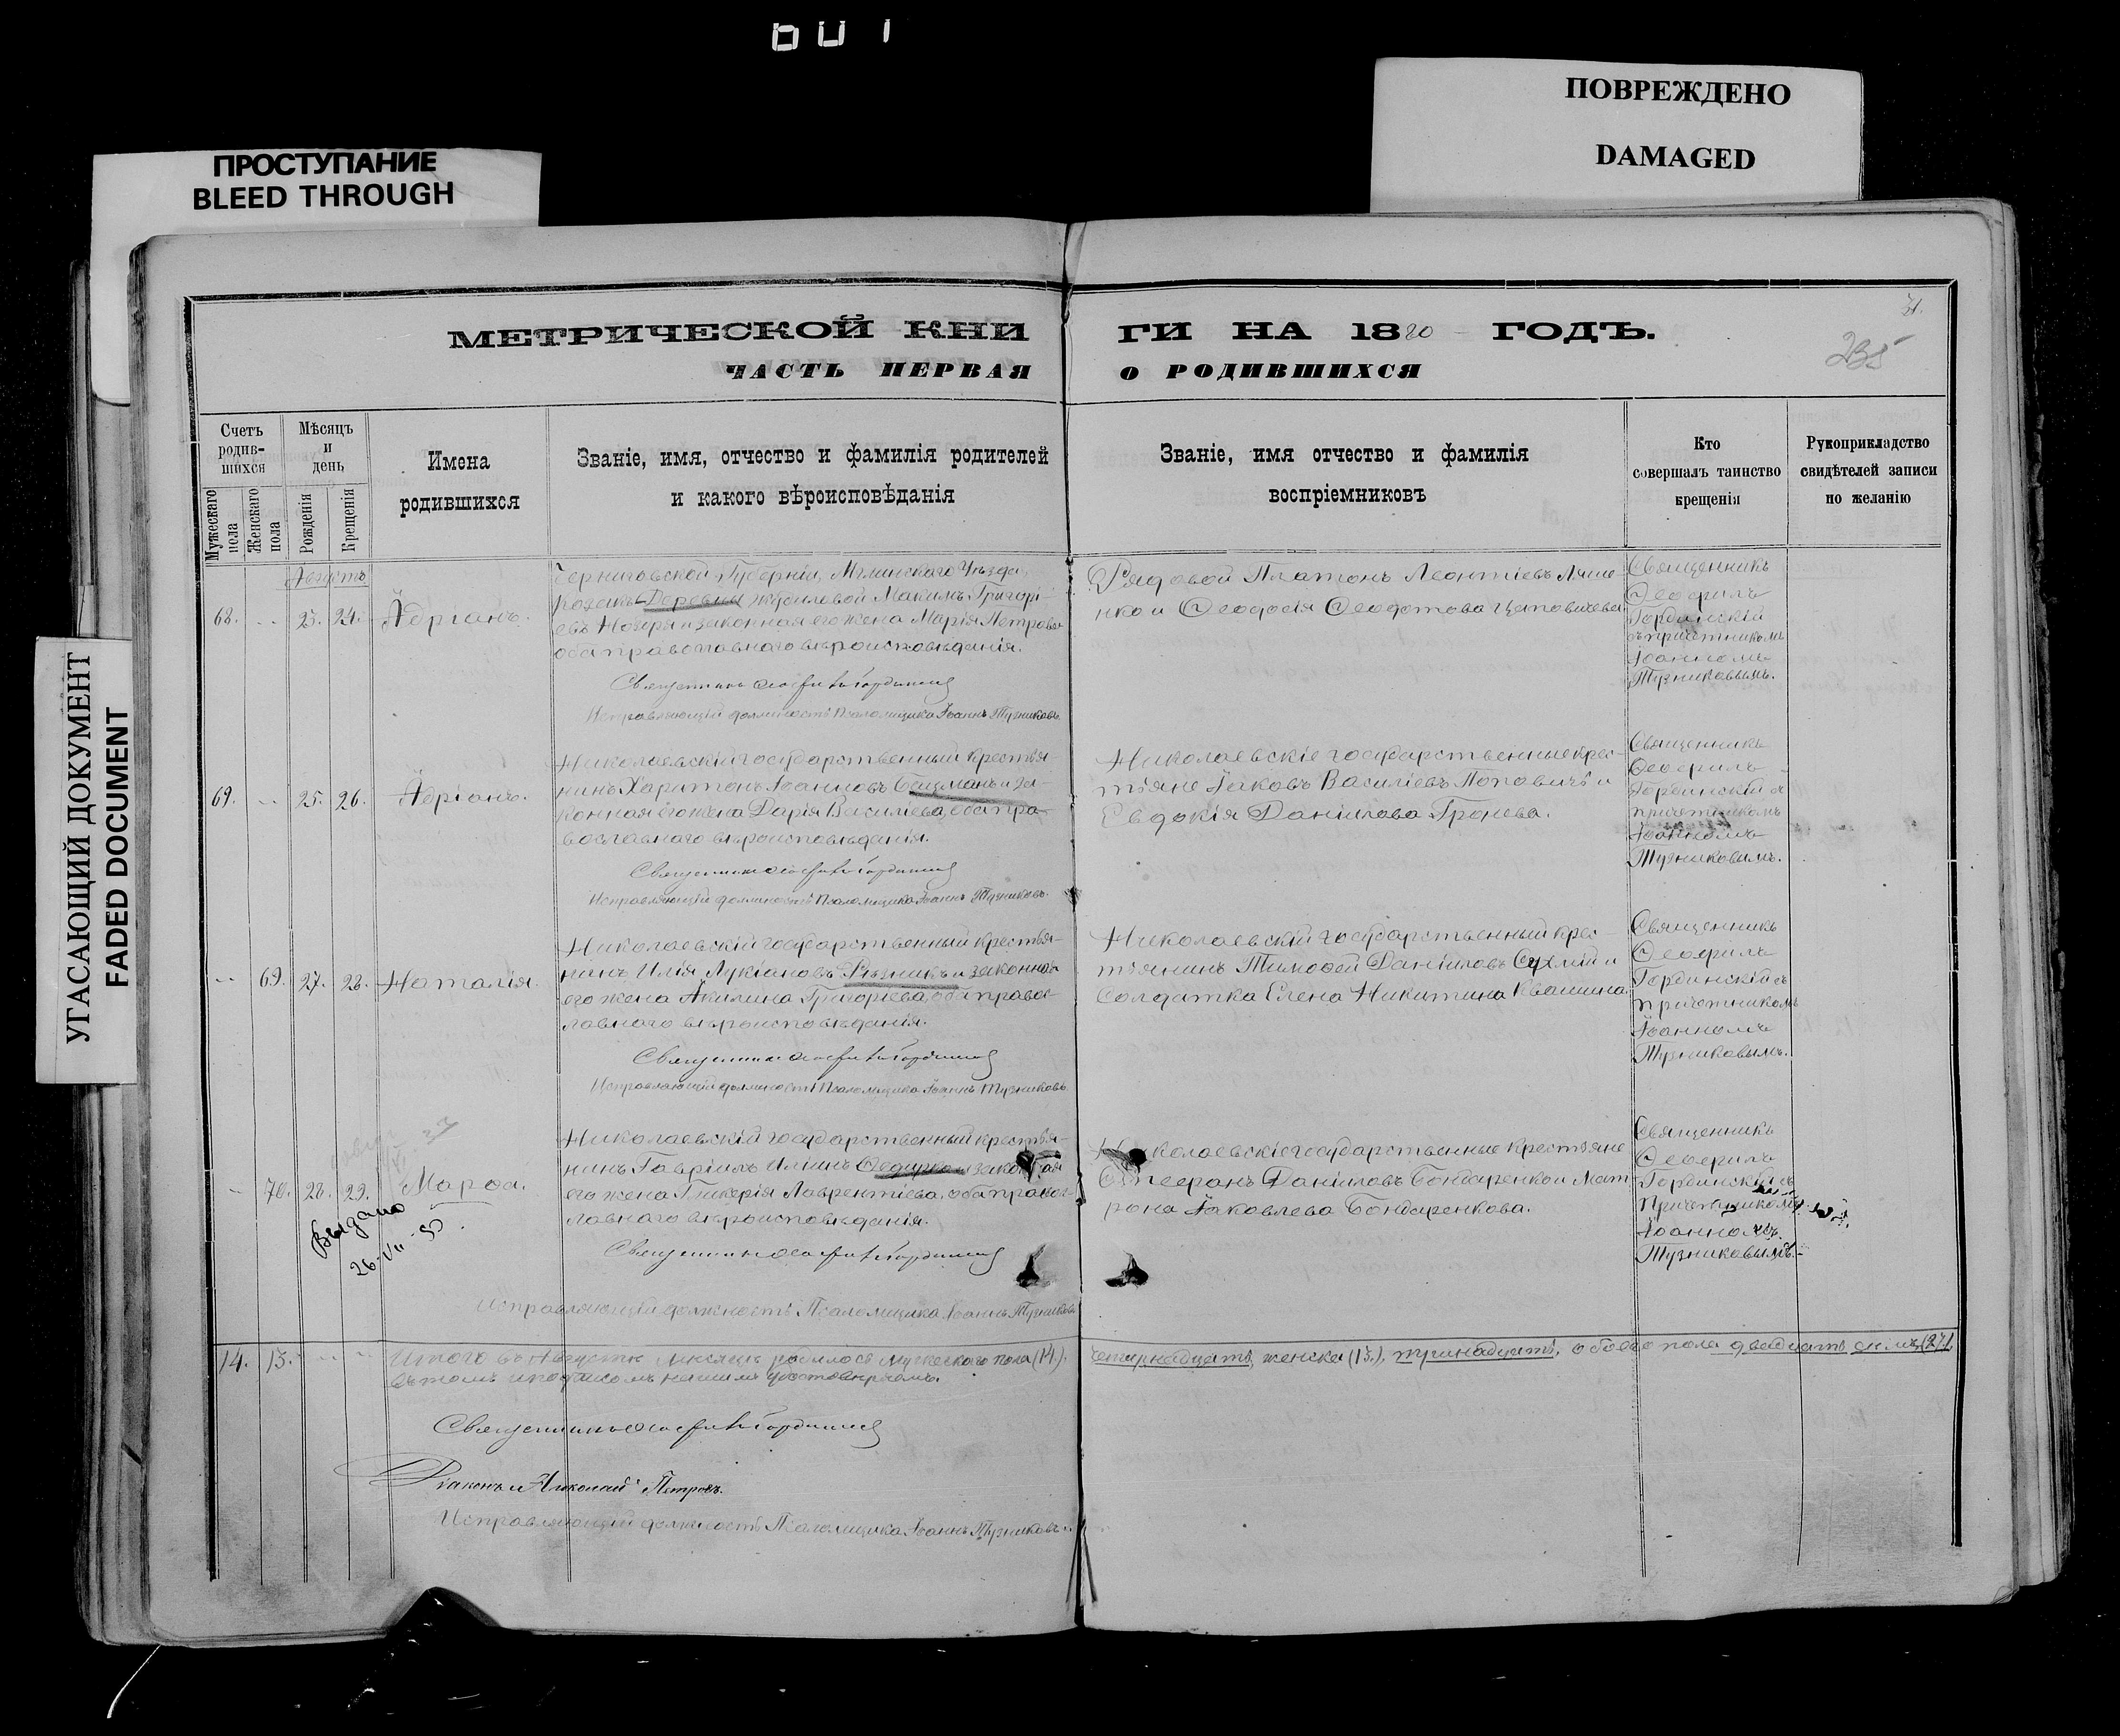 ПОВРЕЖДЕНО
DAMAGED
ПРОСТУПАНИЕ
BLEED THROUGH
УГАСАЮЩИЙ ДОКУМЕНТ
FADED DOCUMENT
МЕТРИЧЕСКОЙ КНИ
ЧАСТЬ ПЕРВАЯ
Счетъ родив-шихся
Мужескаго пола
Женскаго пола
Мѣсяцъ и день
Рожденія
Крещенія
Имена родившихся
Званіе, имя, отчество и фамилія родителей
и какого вѣроисповѣданія
ГИ НА 1880 ГОДЪ.
О РОДИВШИХСЯ
71.
235
Званіе, имя отчество и фамилія
воспріемниковъ
Кто
совершалъ таинство
крещенія
Рукоприкладство
свидѣтелей записи
по желанію
Августъ
68. 23. 24. Адріанъ.
Черниговской Губерніи, Мглинскаго Уѣзда,
Козакъ Деревни Максимъ Григорі-
евъ и законная его жена Марія Петрова
оба православнаго вѣроисповѣданія.
Священникъ Ѳеофилъ Гординскій
Исправляющій должность Псаломщика Іоаннъ Тузниковъ
Рядовой Платонъ Леонтіевъ Ляше-
нко и Ѳеодосія Ѳеодотова
Священникъ
Ѳеофилъ
Гординскій
съ причетникомъ
Іоанномъ
Тузниковымъ.
69. 25. 26. Адріанъ.
Николаевскій государственный крестья-
нинъ Харитонъ Іоанновъ и за-
конная его жена Дарія Василіева, оба пра-
вославнаго вѣроисповѣданія.
Священникъ Ѳеофилъ Гординскій
Исправляющій должность Псаломщика Іоаннъ Тузниковъ.
Николаевскіе государственные крес-
тьяне Іаковъ Василіевъ Поповичъ и
Евдокія Даніилова Гронева.
Священникъ
Ѳеофилъ
Гординскій съ
причетникомъ
Іоанномъ
Тузниковымъ.
69. 27. 28. Наталія.
Николаевскій государственный крестья-
нинъ Илія Лукіановъ Рѣзникъ и законная
его жена Акилина Григоріева, оба правос-
лавнаго вѣроисповѣданія.
Священникъ Ѳеофилъ Гординскій
Исправляющій должность Псаломщика Іоаннъ Тузниковъ
Николаевскій государственный крес-
тьянинъ Тимоѳей Даніиловъ Сухмій и
Солдатка Елена Никитина Квашина.
Священникъ
Ѳеофилъ
Гординскій съ
причетникомъ
Іоанномъ
Тузниковымъ.
70. 28. 29. Марѳа.
Выдано
26-VII-50.
Николаевскій государственный крестья-
нинъ Гавріилъ Иліинъ и законная
его жена Гликерія Лаврентіева, оба правос-
лавнаго вѣроисповѣданія.
Священникъ Ѳеофилъ Гординскій
Исправляющій должность Псаломщика Іоаннъ Тузниковъ
Николаевскіе государственные крестьяне
Даніиловъ Бондаренко и Мат
рона Іаковлева Бондаренкова.
Священникъ
Ѳеофилъ
Гординскій съ
Причетникомъ
Іоанномъ
Тузниковымъ.
14. 13.
Итого въ Августѣ мѣсяцѣ родилось мужескаго пола (14).
четырнадцать, женска (13), тринадцать, обоего пола двадцать семь (27)
въ томъ и подписомъ нашимъ удостовѣряемъ.
Священникъ Ѳеофилъ Гординскій
Діаконъ Николай Петровъ.
Исправляющій должность Псаломщика Іоаннъ Тузниковъ.